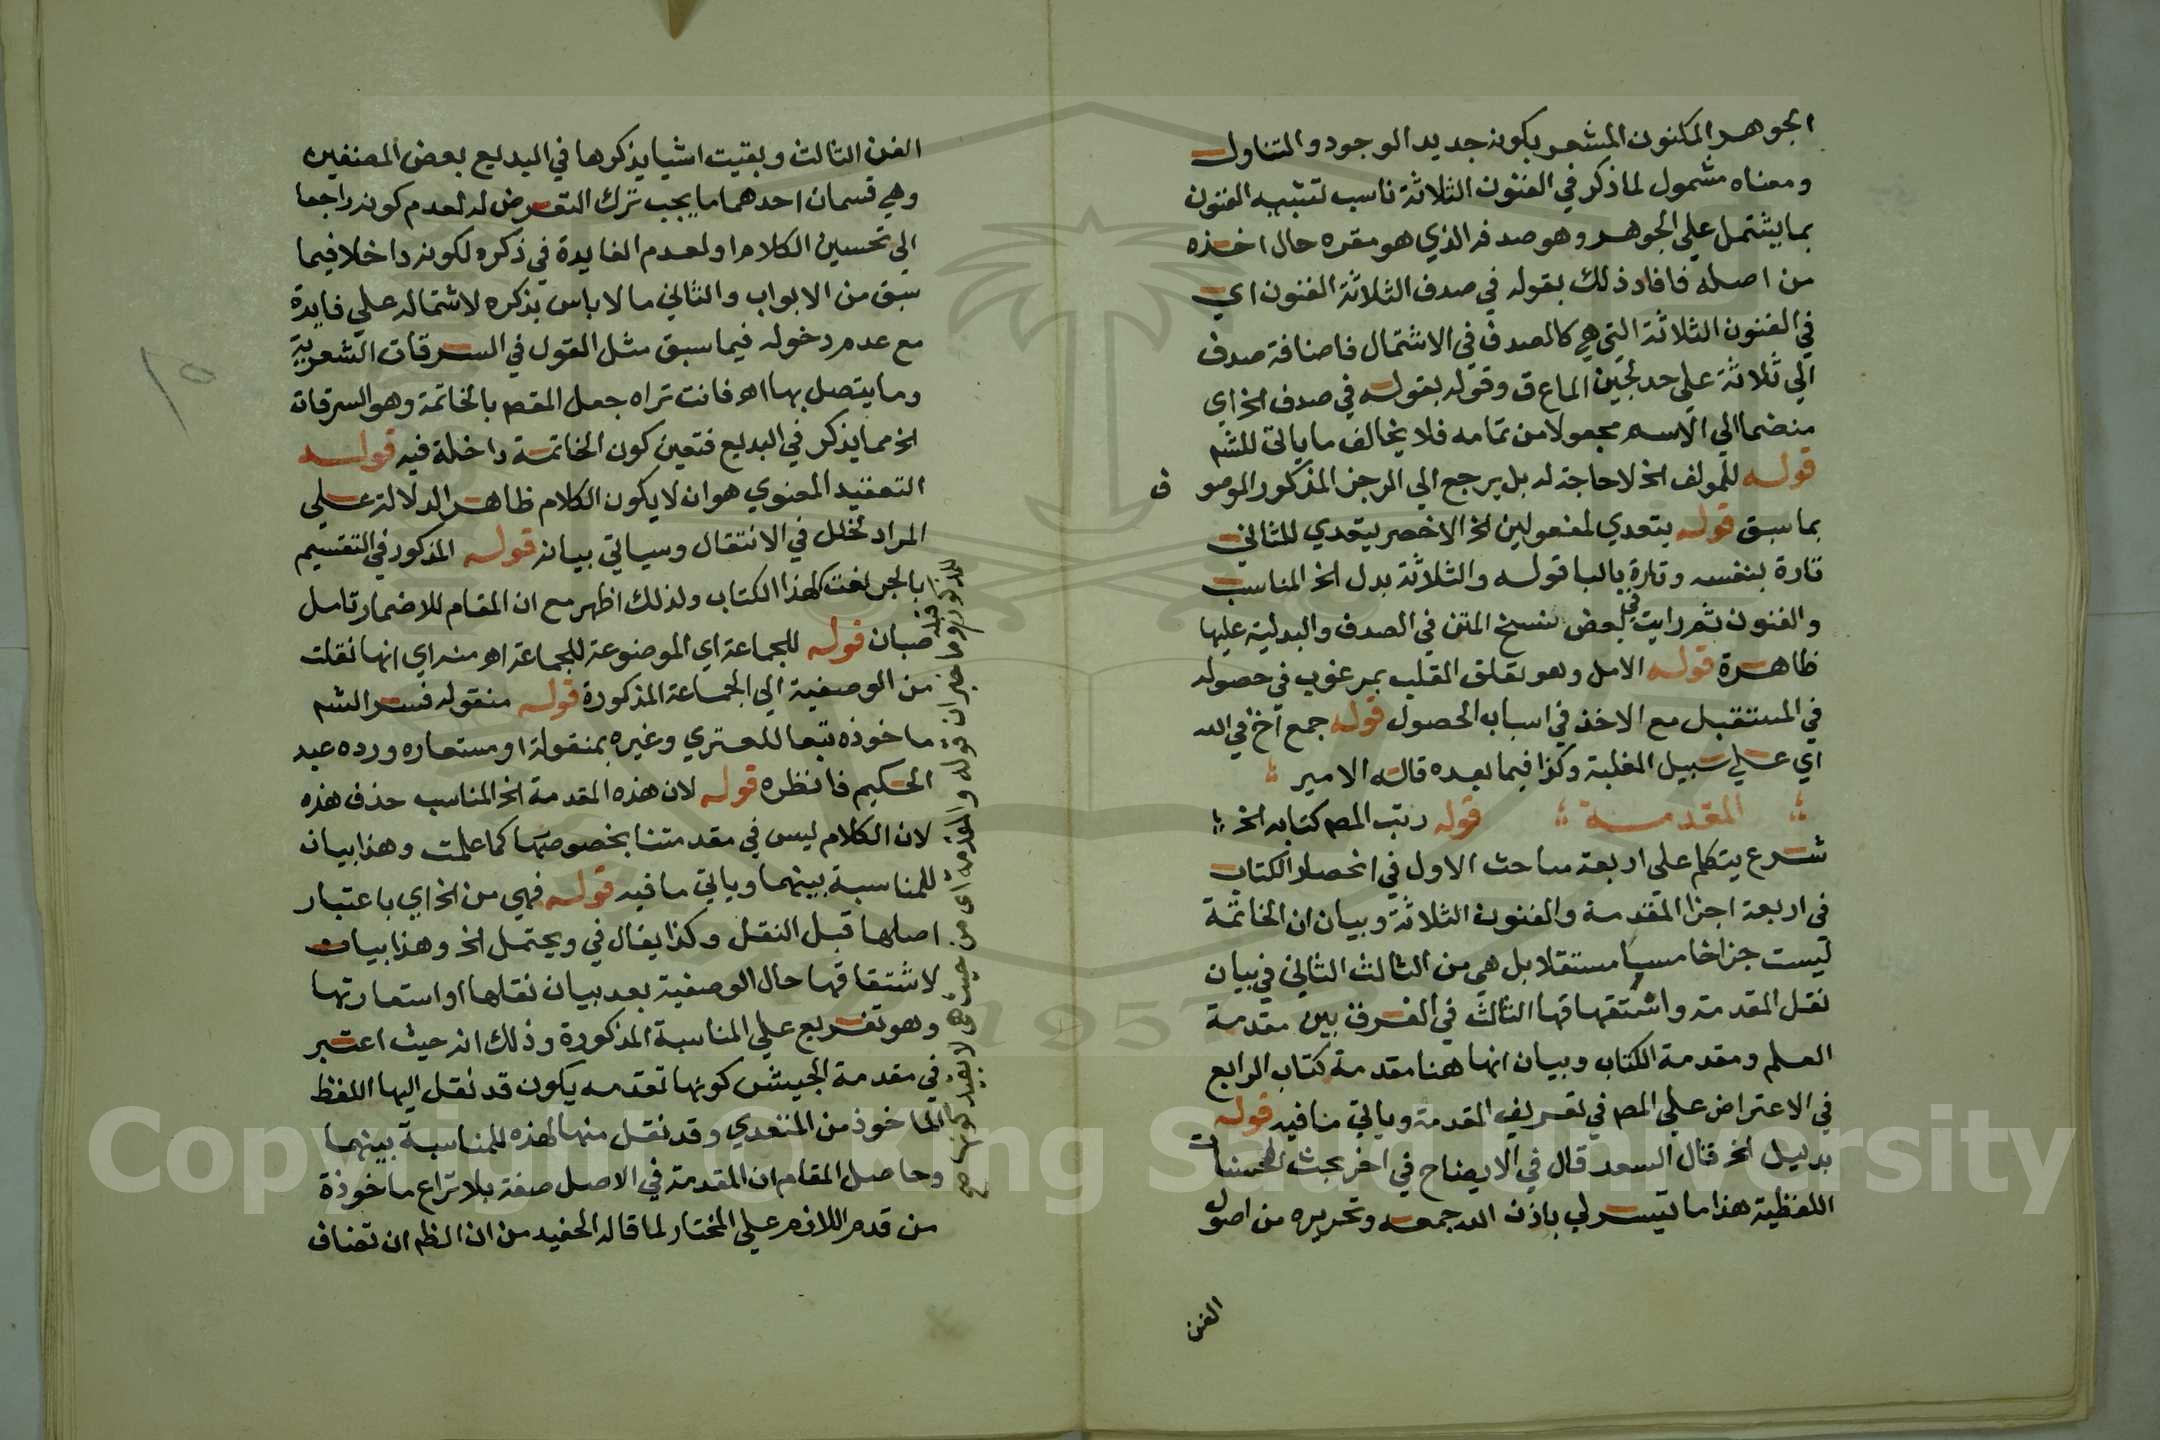 الجوهر المكنون المشعر بكونه جديد الوجود والتناول
ومعناه مشمول لما ذكر في الفنون الثلاثة ناسب تشبيه الفنون
بما يشتمل علي الجوهر وهو صدفه الذي هو مقره حال اخذه
من اصله فافاد ذلك بقوله في صدف الثلاثة الفنون اي
في الفنون الثلاثة التي هي كالصدف في الاشتمال فاضافة صدف
الي ثلاثة علي حد لجين الماء ع ق وقوله بقوله في صدف الخ اي
منضما الي الاسم مجعولا من تمامه فلا يخالف ما ياتي للشم
قوله للمولف الخ لا حاجة له بل يرجع الي الرجز المذكور الموصوف
بما سبق قوله يتعدي لمفعولين الخ الاخصر يتعدي للثاني
تارة بنفسه وتارة بالبا قوله والثلاثة بدل الخ المناسب
والفنون ثم رايت في بعض نسخ المتن في الصدف والبدلية عليها
ظاهرة قوله الامل وهو تعلق القلب بمرغوب في حصوله
في المستقبل مع الاخذ في اسباب الحصول قوله جمع اخ في الله
اي علي سبيل الغلبة وكذا فيما بعده قاله الامير
المقدمة قوله رتب المصم كتابه الخ
شرع يتكلم علي اربعة مباحث الاول في انحصار الكتاب
في اربعة اجزا المقدمة والفنون الثلاثة وبيان ان الخاتمة
ليست جزا خامسا مستقلا بل هي من الثالث الثاني في بيان
نقل المقدمة واشتقاقها الثالث في الفرق بين مقدمة
العلم ومقدمة الكتاب وبيان انها هنا مقدمة كتاب الرابع
في الاعتراض علي المصم في تعريف المقدمة وياتي ما فيه قوله
بدليل الخ قال السعد قال في الايضاح في اخر بحث المحسنات
اللفظية هذا ما تيسر لي باذن الله جمعه وتحريره من اصول
الفن
الفن الثالث وبقيت اشيا يذكرها في البديع بعض المصنفين
وهي قسمان احدهما ما يجب ترك التعرض له لعدم كونه راجعا
الي تحسين الكلام او لعدم الفايدة في ذكره لكونه داخلا فيما
سبق من الابواب والثاني ما لا باس بذكره لاشتماله علي فايدة
مع عدم دخوله فيما سبق مثل القول في السرقات الشعرية
وما يتصل بها اهـ فانت تراه جعل المقصم بالخاتمة وهو السرقات
الخ مما يذكر في البديع فتعين كون الخاتمة داخلة فيه قوله
التعقيد المعنوي هو ان لا يكون الكلام ظاهر الدلالة علي
المراد لخلل في الانتقال وسياتي بيانه قوله المذكور في التقسيم
بالجر نعت لهذا الكتاب ولذلك اظهر مع ان المقام للاضمار تامل
صبان قوله للجماعة اي الموضوعة للجماعة اهـ منه اي انها نقلت
من الوصفية الي الجماعة المذكورة قوله منقوله فسر الشم
ماخوذه تبعا للمعتري وغيره بمنقولة او مستعاره ورده عبد
الحكيم فانظره قوله لان هذه المقدمة الخ المناسب حذف هذه
لان الكلام ليس في مقدمتنا بخصوصها كما علمت وهذا بيان
للمناسبة بينهما وياتي ما فيه قوله فهي من الخ اي باعتبار
اصلها قبل النقل وكذا يقال في ويحتمل الخ وهذا بيان
لاشتقاقها حال الوصفية بعد بيان نقلها او استعارتها
وهو تفريع علي المناسبة المذكورة وذلك انه حيث اعتبر
في مقدمة الجيش كونها تقدمه يكون قد نقل اليها اللفظ
الماخوذ من المتعدي وقد نقل منها لهذه للمناسبة بينهما
وحاصل المقام ان المقدمة في الاصل صفة بلا نزاع ماخوذة
من قدم اللازم علي المختار لما قاله الحفيد من ان الظم ان تضاف
Copyright © King Saud University
1957